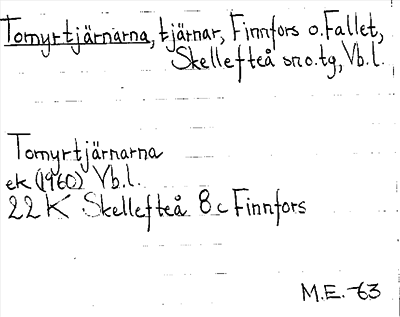 Tomyrtjärnarna, tjärnar, Finnfors o. Fallet,
Skellefteå sn o. tg, Vb. l.
Tomyrtjärnarna
ek (1960) Vb. l.
22 K Skellefteå 8 c Finnfors
M.E. -63